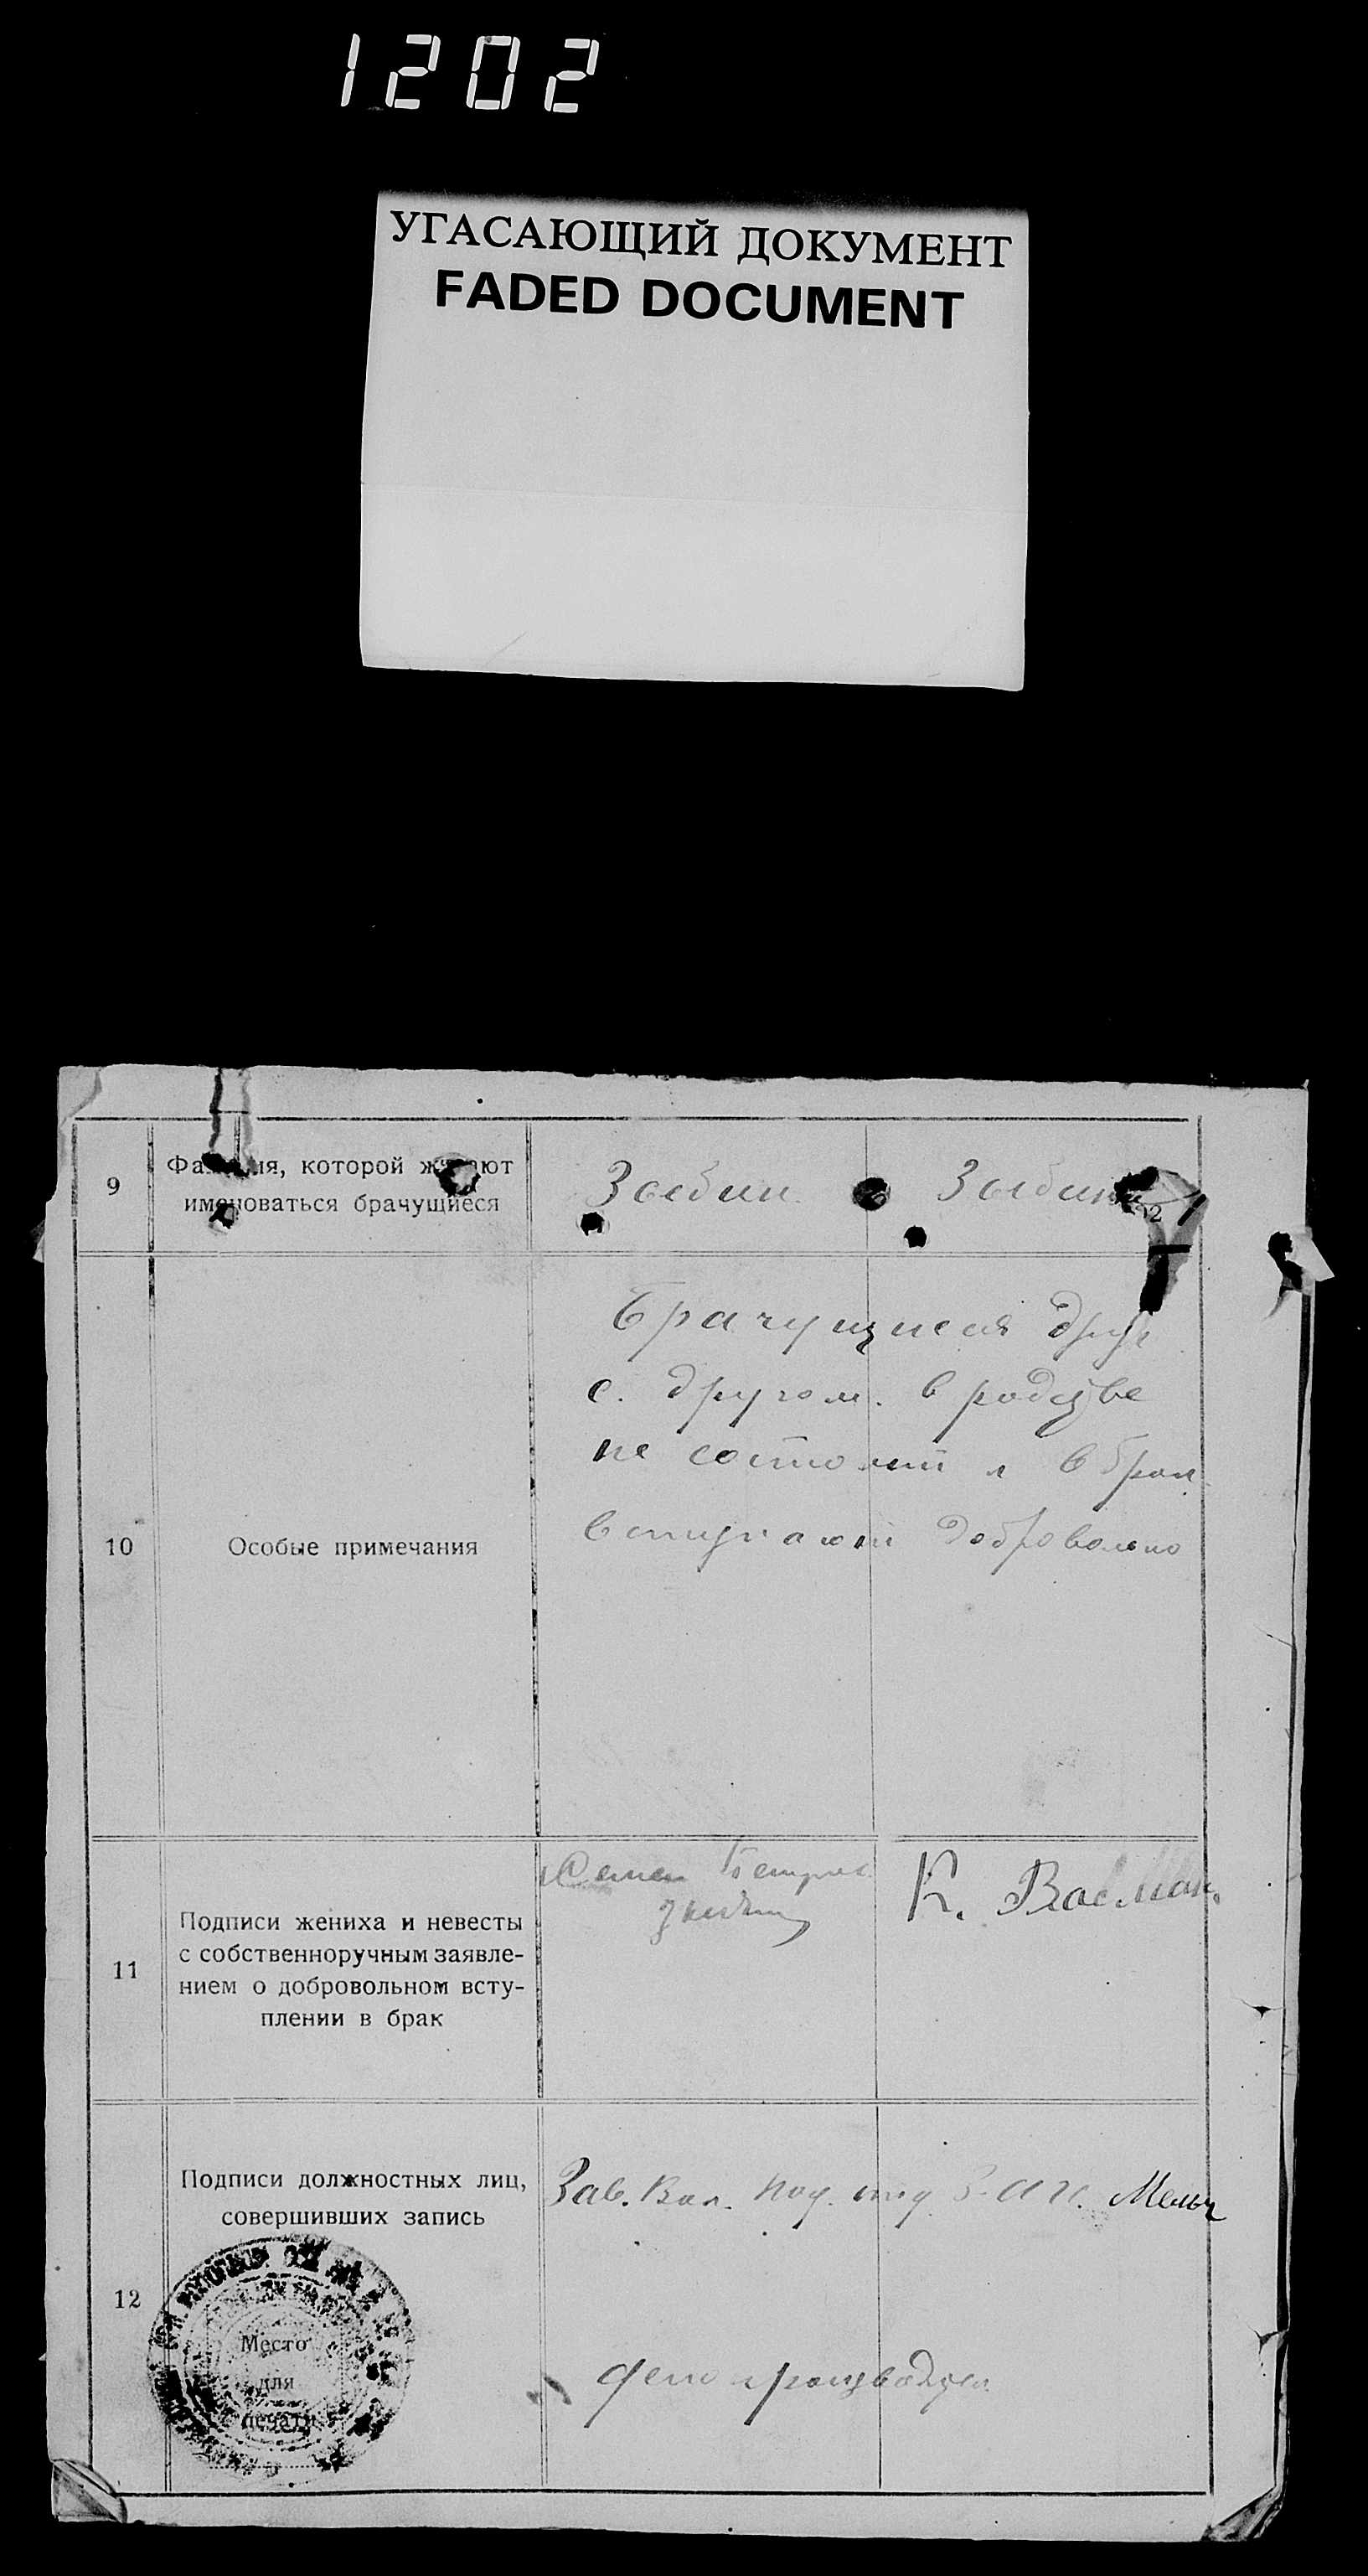 1202
УГАСАЮЩИЙ ДОКУМЕНТ
FADED DOCUMENT
9
Фамилия, которой желают
именоваться брачущиеся
Зыбин
Зыбина
10
Особые примечания
Брачущиеся друг
с. другом. в родстве
не состоят и в брак
вступают добровольно
11
Подписи жениха и невесты
с собственноручным заявле-
нием о добровольном всту-
плении в брак
Семен
К.
12
Подписи должностных лиц,
совершивших запись
Зав. Вол. Под. отд З.А.Г.
Делопроизводит
Место
для
печати